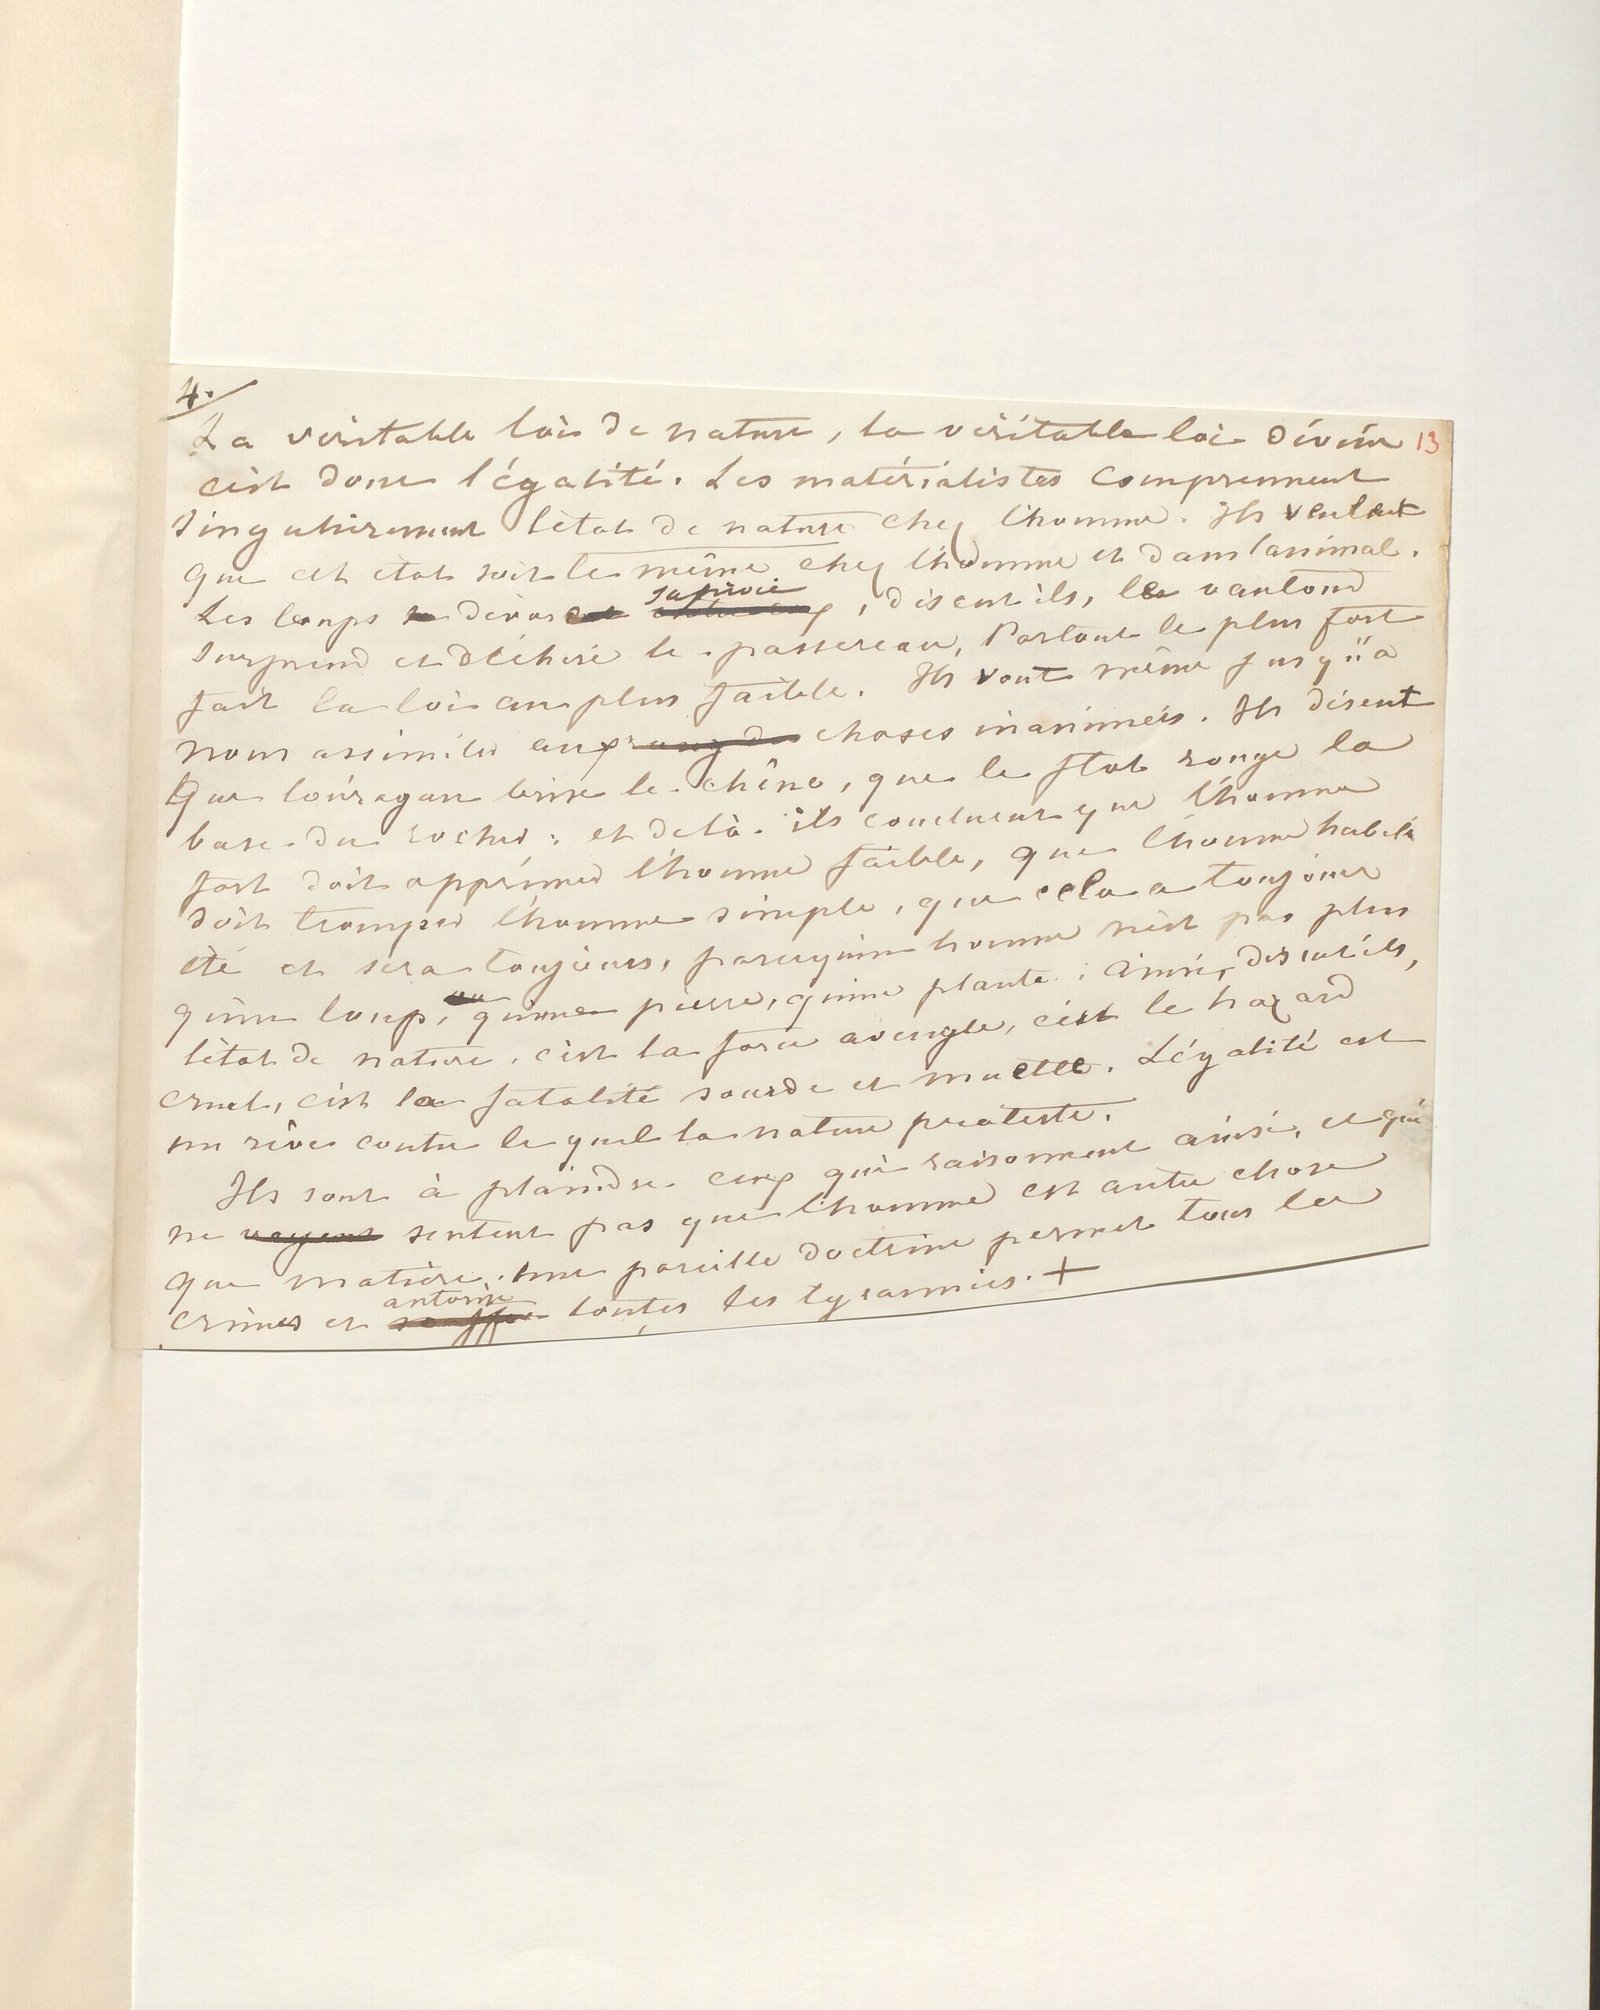 4.
La véritable loi de nature, la véritable loi divine 13
c'est donc l'égalité. Les matérialistes comprennent
singulièrement l'état de nature chez l'homme. Ils veulent
que cet état soit le même chez l'homme et dans l'animal.
sa proie
Les loups dévorent, disent ils, le vautour
surprend et déchire le passereau, Partout le plus fort
fait la loi au plus faible. Ils vont même jusqu'à
nous assimiler aux rang des choses inanimées. Ils disent
Que l'ouragan brise le chêne, que le flot ronge la
base du rocher : et delà ils concluent que l'homme
fort doit opprimer l'homme faible, que l'homme habile
doit tromper l'homme simple, que cela a toujours
été et sera toujours, parcequ'un homme n'est pas plus
qu'un loup, qu'une pierre, qu'une plante. Ainsi, disent ils,
l'état de nature, c'est la force aveugle, c'est le hazard
cruel, c'est la fatalité sourde et muette. L'égalité est
un rêve contre lequel la nature proteste.
Ils sont à plaindre ceux qui raisonnent ainsi, et qui
ne voyent sentent pas que l'homme est autre chose
que matière. une pareille doctrine permet tous les
autorise
crimes et souffre toutes les tyrannies. +